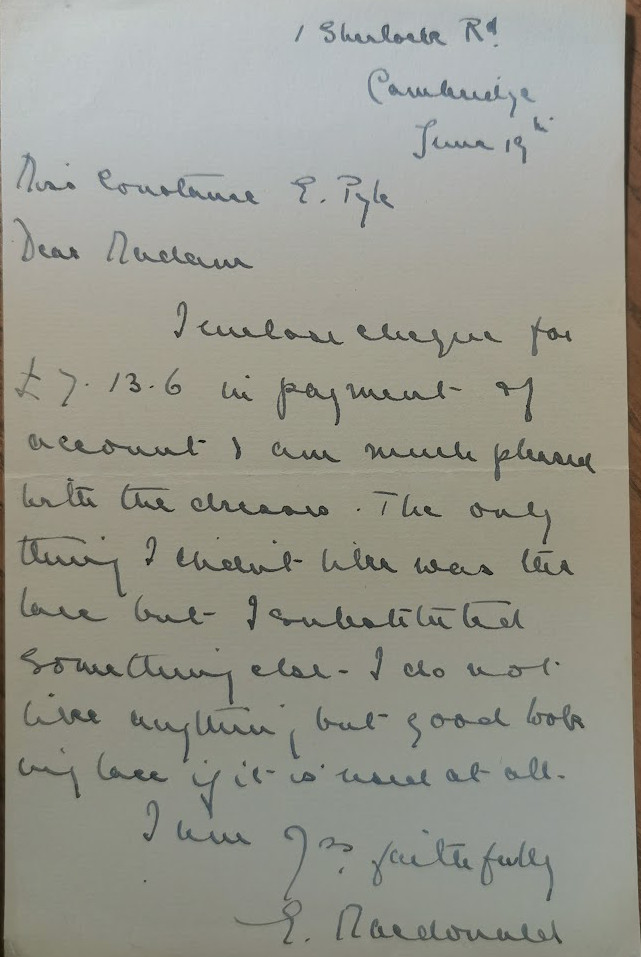 1 Sherlock Rd.
Cambridge
June 19th
Miss Constance E. Pyke
Dear Madam
I enclose cheque for
£7.13.6 in payment of
account & I am much pleased
with the dresses. The only
thing I didn't like was the
lace but I substituted
something else - I do not
like anything but good look
ing lace if it is used at all.
I am Yrs. faithfully
E. Macdonald